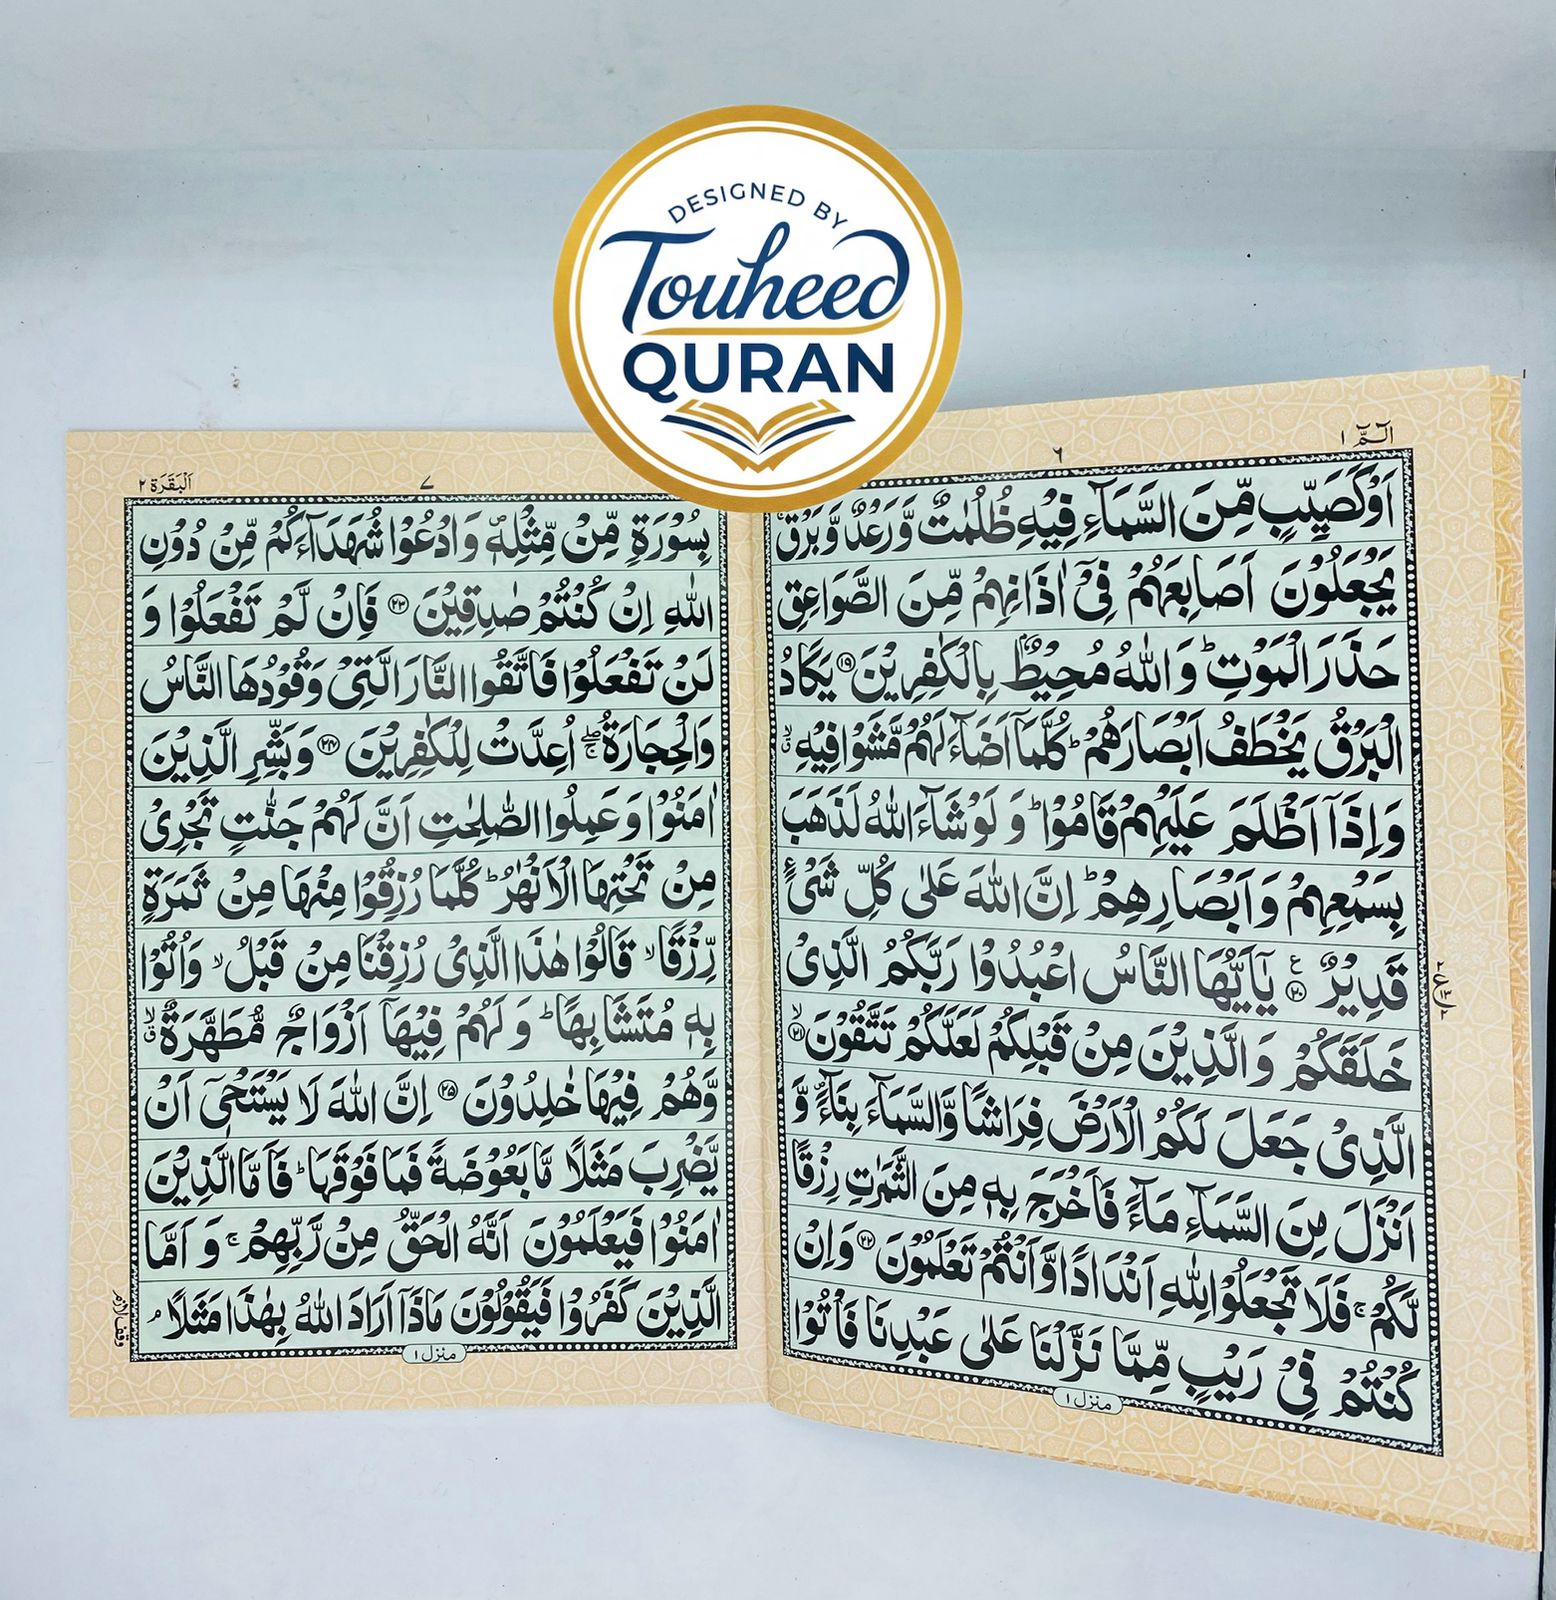 DESIGNED BY
Touheed
QURAN
الٓمّٓ ١
٦
اَوْ كَصَيِّبٍ مِّنَ السَّمَآءِ فِيْهِ ظُلُمٰتٌ وَّ رَعْدٌ وَّ بَرْقٌ ۚ
يَجْعَلُوْنَ اَصَابِعَهُمْ فِيْۤ اٰذَانِهِمْ مِّنَ الصَّوَاعِقِ
حَذَرَ الْمَوْتِ ؕ وَ اللّٰهُ مُحِيْطٌۢ بِالْكٰفِرِيْنَ ﴿۱۹﴾ يَكَادُ
الْبَرْقُ يَخْطَفُ اَبْصَارَهُمْ ؕ كُلَّمَاۤ اَضَآءَ لَهُمْ مَّشَوْا فِيْهِ ۙۗ
وَ اِذَاۤ اَظْلَمَ عَلَيْهِمْ قَامُوْا ؕ وَ لَوْ شَآءَ اللّٰهُ لَذَهَبَ
بِسَمْعِهِمْ وَ اَبْصَارِهِمْ ؕ اِنَّ اللّٰهَ عَلٰى كُلِّ شَيْءٍ
قَدِيْرٌ ﴿۲۰﴾ ع يٰۤاَيُّهَا النَّاسُ اعْبُدُوْا رَبَّكُمُ الَّذِيْ
خَلَقَكُمْ وَ الَّذِيْنَ مِنْ قَبْلِكُمْ لَعَلَّكُمْ تَتَّقُوْنَ ﴿۲۱﴾ ۙ
الَّذِيْ جَعَلَ لَكُمُ الْاَرْضَ فِرَاشًا وَّ السَّمَآءَ بِنَآءً ۪ وَّ
اَنْزَلَ مِنَ السَّمَآءِ مَآءً فَاَخْرَجَ بِهٖ مِنَ الثَّمَرٰتِ رِزْقًا
لَّكُمْ ۚ فَلَا تَجْعَلُوْا لِلّٰهِ اَنْدَادًا وَّ اَنْتُمْ تَعْلَمُوْنَ ﴿۲۲﴾ وَ اِنْ
كُنْتُمْ فِيْ رَيْبٍ مِّمَّا نَزَّلْنَا عَلٰى عَبْدِنَا فَاْتُوْا
منزل ١
٧
اَلْبَقَرَة ٢
بِسُوْرَةٍ مِّنْ مِّثْلِهٖ ۪ وَ ادْعُوْا شُهَدَآءَكُمْ مِّنْ دُوْنِ
اللّٰهِ اِنْ كُنْتُمْ صٰدِقِيْنَ ﴿۲۳﴾ فَاِنْ لَّمْ تَفْعَلُوْا وَ
لَنْ تَفْعَلُوْا فَاتَّقُوا النَّارَ الَّتِيْ وَقُوْدُهَا النَّاسُ
وَ الْحِجَارَةُ ۖۚ اُعِدَّتْ لِلْكٰفِرِيْنَ ﴿۲۴﴾ وَ بَشِّرِ الَّذِيْنَ
اٰمَنُوْا وَ عَمِلُوا الصّٰلِحٰتِ اَنَّ لَهُمْ جَنّٰتٍ تَجْرِيْ
مِنْ تَحْتِهَا الْاَنْهٰرُ ؕ كُلَّمَا رُزِقُوْا مِنْهَا مِنْ ثَمَرَةٍ
رِّزْقًا ۙ قَالُوْا هٰذَا الَّذِيْ رُزِقْنَا مِنْ قَبْلُ ۙ وَ اُتُوْا
بِهٖ مُتَشَابِهًا ؕ وَ لَهُمْ فِيْهَاۤ اَزْوَاجٌ مُّطَهَّرَةٌ ۙۗ
وَّ هُمْ فِيْهَا خٰلِدُوْنَ ﴿۲۵﴾ اِنَّ اللّٰهَ لَا يَسْتَحْيٖۤ اَنْ
يَّضْرِبَ مَثَلًا مَّا بَعُوْضَةً فَمَا فَوْقَهَا ؕ فَاَمَّا الَّذِيْنَ
اٰمَنُوْا فَيَعْلَمُوْنَ اَنَّهُ الْحَقُّ مِنْ رَّبِّهِمْ ۚ وَ اَمَّا
الَّذِيْنَ كَفَرُوْا فَيَقُوْلُوْنَ مَاذَاۤ اَرَادَ اللّٰهُ بِهٰذَا مَثَلًا ۘ
وقف لازم
منزل ١